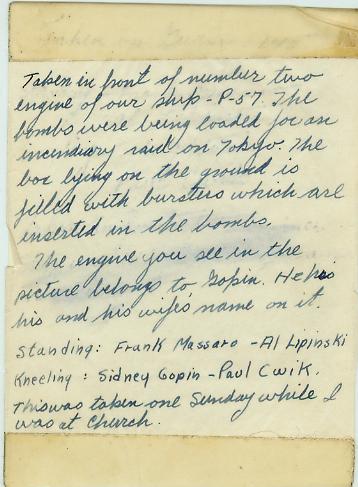 Taken in front of number two
engine of our ship - P-57. The
bombs were being loaded for an
incendiary raid on Tokyo. The
box lying on the ground is
filled with bursters which are
inserted in the bombs.
The engine you see in the
picture belongs to Gopin. He has
his and his wife's name on it.
Standing: Frank Massaro - Al Lipinski
Kneeling: Sidney Gopin - Paul Cwik.
This was taken one Sunday while I
was at Church.